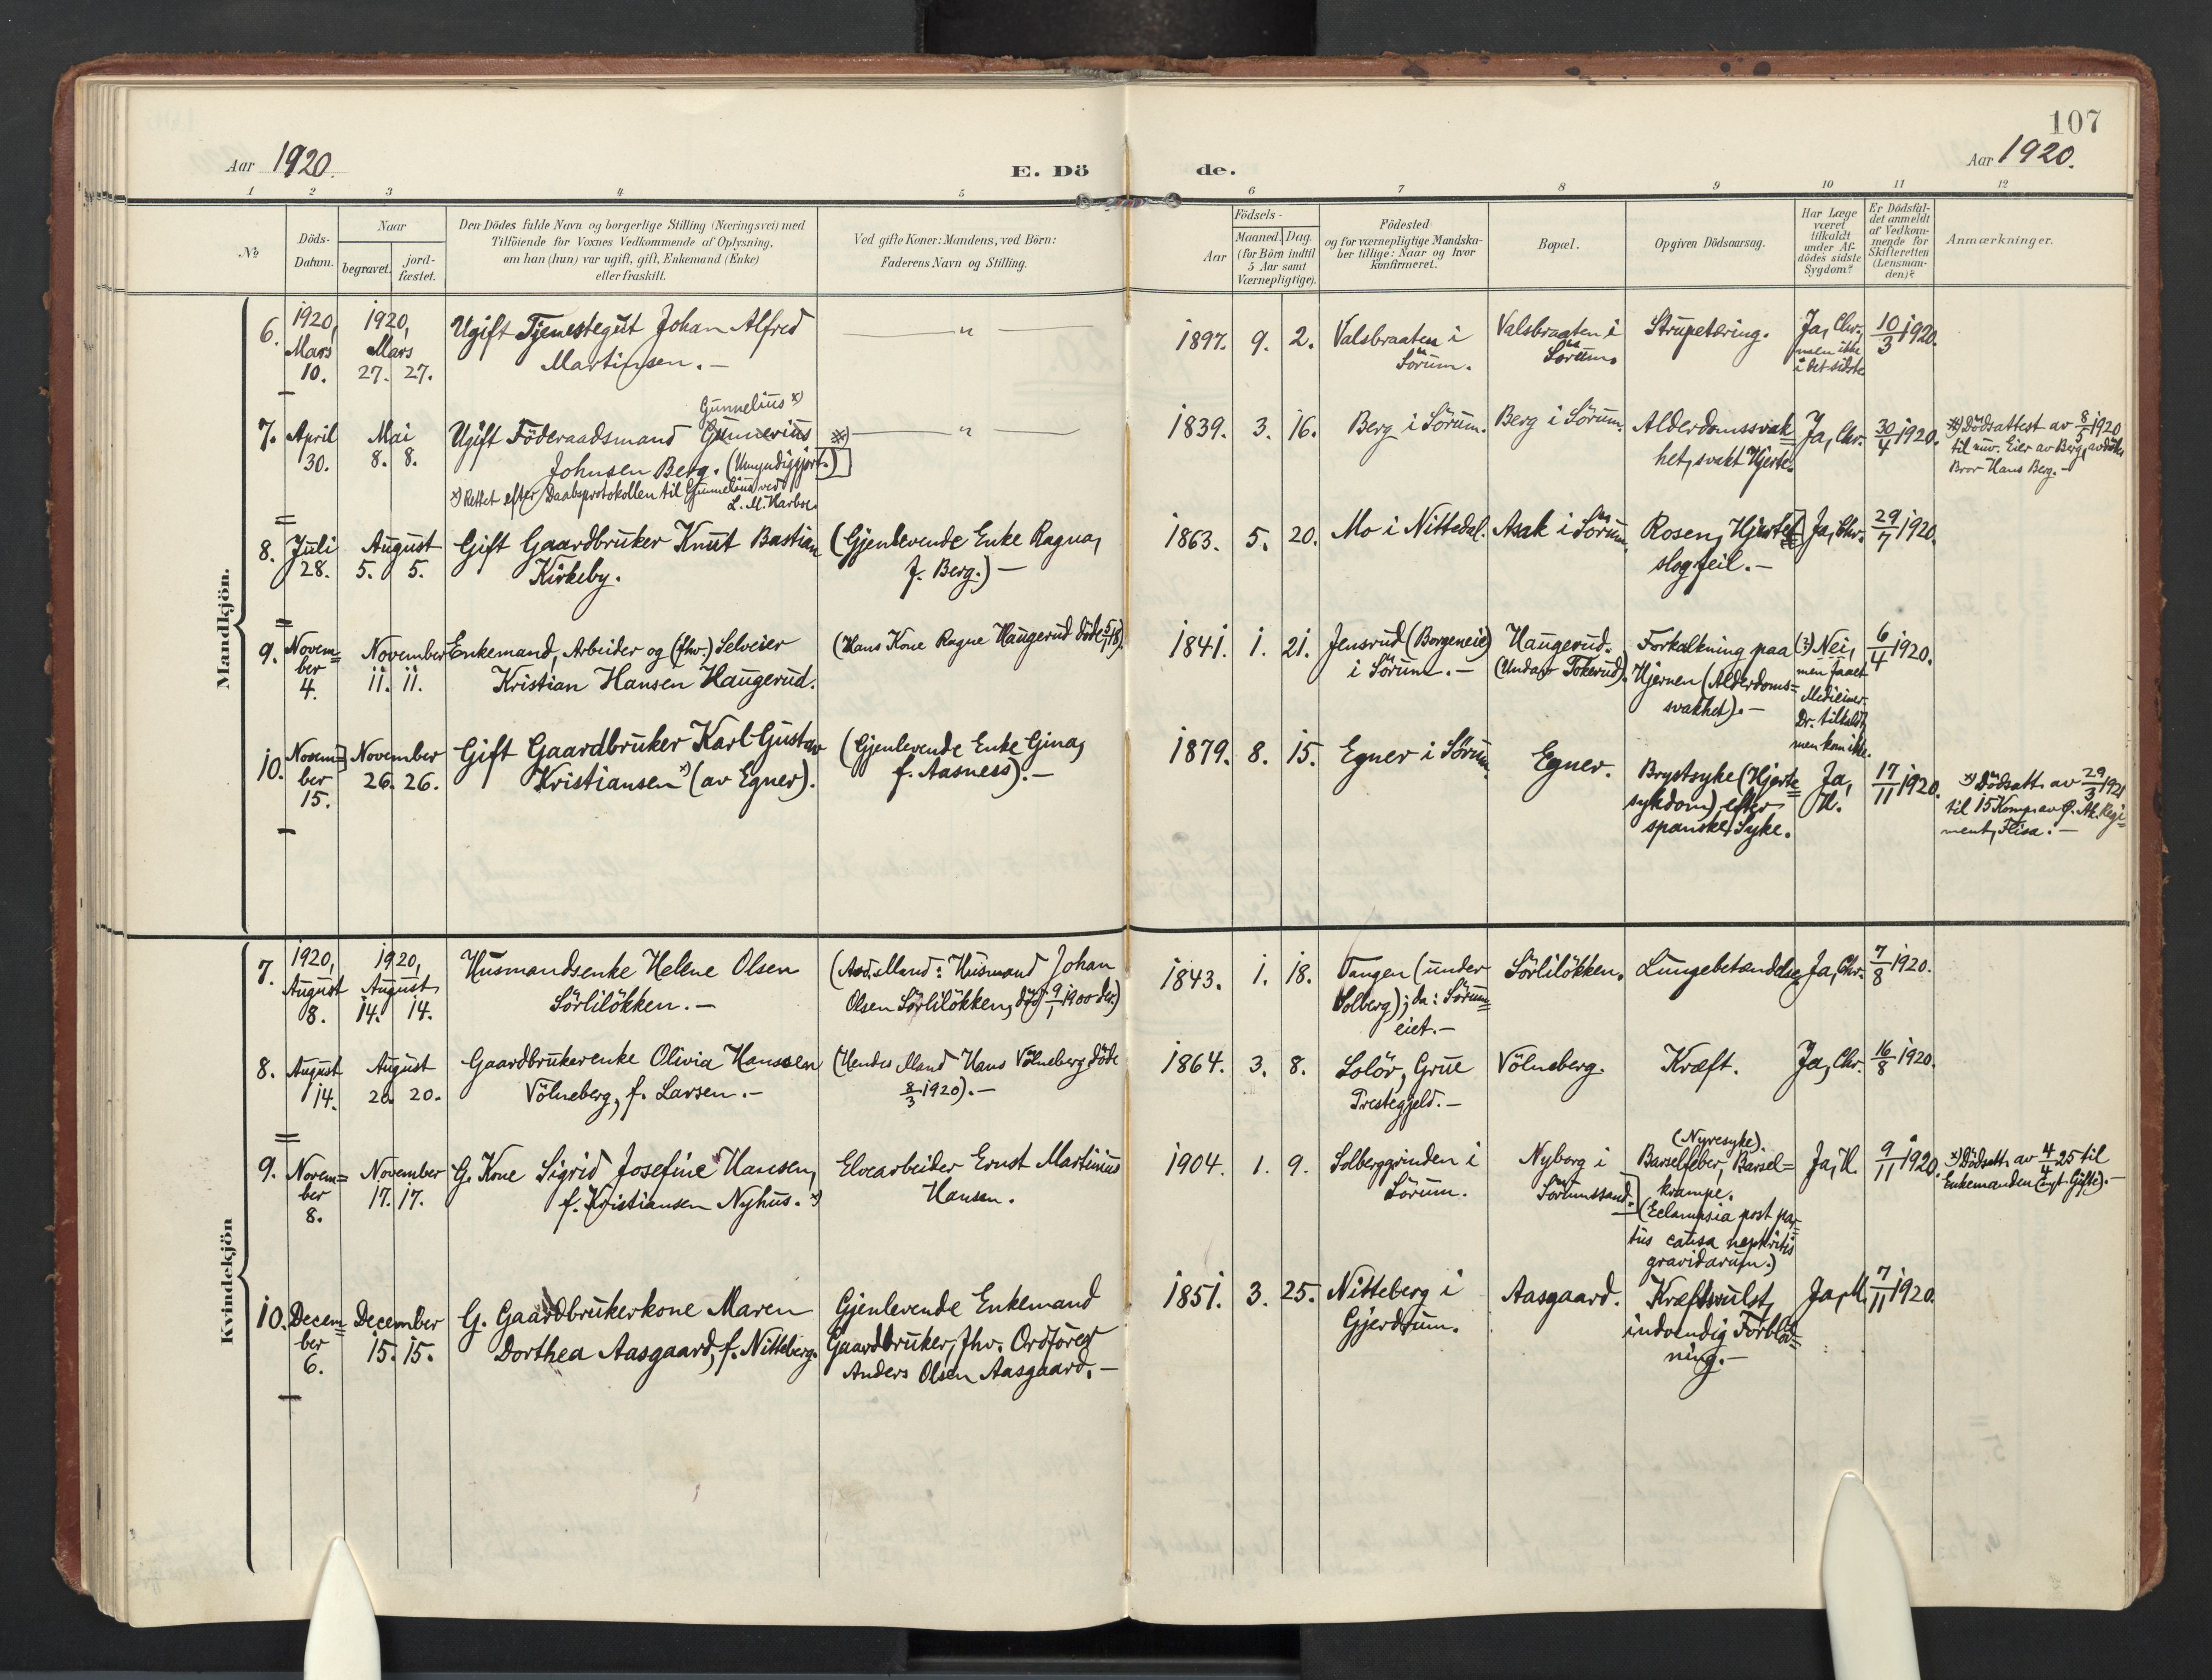 107
Aar 1920.
E. Dö de.
Aar 1920.
1 2 3 4 5 6 7 8 9 10 11 12
No
Döds-
Datum.
Naar
begravet.
jord-
fæstet.
Den Dödes fulde Navn og borgerlige Stilling (Næringsvei) med
Tilföiende for Voxnes Vedkommende af Oplysning,
om han (hun) var ugift, gift, Enkemand (Enke)
eller fraskilt.
Ved gifte Koner: Mandens, ved Börn:
Faderens Navn og Stilling.
Födsels-
Aar
Maaned. Dag.
(for Börn indtil
5 Aar samt
Værnepligtige).
Födested
og for værnepligtige Mandska-
ber tillige: Naar og hvor
konfirmeret.
Bopæl.
Opgiven Dödsaarsag.
Har Læge
været
tilkaldt
under Af-
dödes sidste
Sygdom?
Er Dödsfal-
det anmeldt
af Vedkom-
mende for
Skifteretten
(Lensman-
den)?
Anmærkninger.
Mandkjön.
6.
1920,
Mars
10.
1920,
Mars
27. 27.
Ugift Tjenestegut Johan Alfred
Martinsen.—
— " —
1897. 9. 2.
Valsbraaten i
Sörum.
Valsbraaten i
Sörum.
Strupetæring.
Ja, Chr.,
men ikke
i det sidste
10/3 1920.
7.
April
30.
Mai
8. 8.
Gunnelius x)
Ugift Föderaadsmand Gunnerius x)
Johnsen Berg. (Umyndiggjort.)
x) Rettet efter Daabsprotokollen til Gunnelius ved
L. M. Harboe.
— " —
1839. 3. 16.
Berg i Sörum.
Berg i Sörum.
Alderdomssvak=
het, svakt Hjerte.
Ja, Chr.
30/4 1920.
x) Dödsattest av 8/5 1920
til nuv. Eier av Berg, avdödes
Bror Hans Berg.—
8.
Juli
28.
August
5. 5.
Gift Gaardbruker Knut Bastian
Kirkeby.
(Gjenlevende Enke Ragna,
f. Berg.)—
1863. 5. 20.
Mo i Nittedal.
Asak i Sörum.
Rosen, Hjerte=
slagfeil.—
Ja, Chr.
29/7 1920.
9.
Novem=
ber
4.
November
11. 11.
Enkemand, Arbeider og (fhv.) Selveier
Kristian Hansen Haugerud.
(Hans Kone Ragne Haugerud döde 5/1 18).
1841. 1. 21.
Jensrud (Borgeneie)
i Sörum.—
Haugerud.
(Undar Tokerud).
Forkalkning paa
Hjernen (Alderdoms=
svakhet).—
(?) Nei,
men faaet
Mediciner.
Dr. tilkaldt,
men kom ikke.
6/4 1920.
10.
Novem=
ber
15.
November
26. 26.
Gift Gaardbruker Karl Gustav
Kristiansen x) (av Egner).
(Gjenlevende Enke Gina,
f. Aasness).—
1879. 8. 15.
Egner i Sörum.
Egner.
Brystsyke (Hjerte=
sykdom), efter
spanske Syke.
Ja,
H.
17/11 1920.
x) Dödsatt. av 29/3 1921
til 15 Komp. av Ö. Ak. Regi=
ment, Flisa.—
Kvindekjön
7.
1920,
August
8.
1920,
August
14. 14.
Husmandsenke Helene Olsen
Sörliløkken.—
(Avd. Mand: Husmand Johan
Olsen Sörliløkken, död 9/1 1900 der.)
1843. 1. 18.
Vangen (under
Solberg); da: Sörum=
eiet.—
Sörliløkken.
Lungebetændelse
Ja, Chr.
7/8 1920.
8.
August
14.
August
20. 20.
Gaardbrukerenke Olivia Hanssen
Völneberg, f. Larsen.—
(Hendes Mand Hans Völneberg döde
8/3 1920).—
1864. 3. 8.
Solör, Grue
Prestegjeld.—
Völneberg.
Kræft.
Ja, Chr.
16/8 1920.
9.
Novem=
ber
8.
November
17. 17.
G. Kone Sigrid Josefine Hansen,
f. Kristiansen Nyhus. x)
Elvearbeider Ernst Martinius
Hansen.
1904. 1. 9.
Solberggrinden i
Sörum.
Nyborg i
Sörumssand.
(Nyresyke).
Barselfeber, Barsel=
krampe.
(Eclampsia post par=
tus causa nephritis
gravidarum.)
Ja, H.
9/11 1920.
x) Dödsatt. av 4/4 25 til
Enkemanden (nyt Gifte).—
10.
Decem=
ber
6.
December
15. 15.
G. Gaardbrukerkone Maren
Dorthea Aasgaard, f. Nitteberg.
Gjenlevende Enkemand
Gaardbruker, fhv. Ordförer
Anders Olsen Aasgaard.—
1851. 3. 25.
Nitteberg i
Gjerdrum.
Aasgaard.
Kræftsvulst,
indvendig Forblö=
ning.—
Ja, M.
7/11 1920.